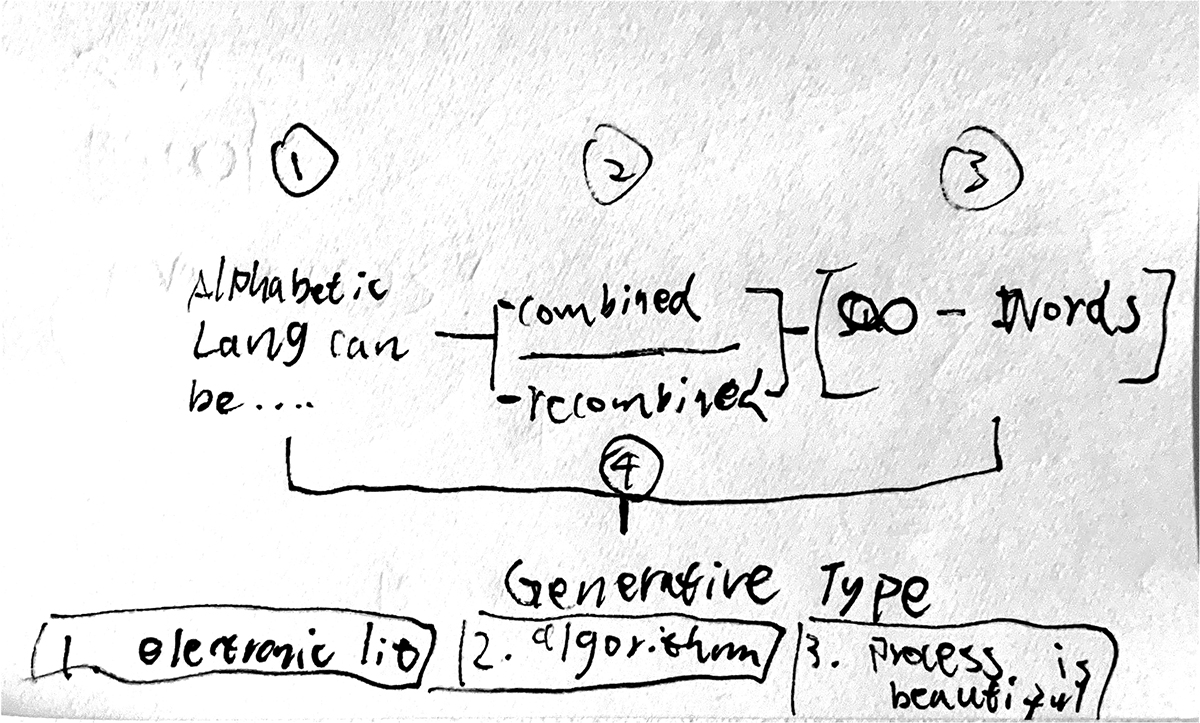 1 2 3
Alphabetic
Lang can
be....
-combined
-recombined
[∞ - Words]
4
Generative Type
1. electronic lit
2. algorithm
3. process is
beautiful